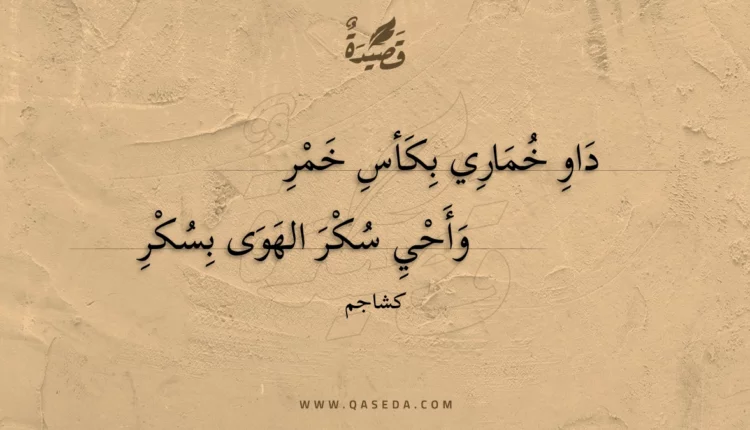 قَصِيْدَةٌ
دَاوِ خُمَارِي بِكَأسِ خَمْرِ
وَأَحْيِ سُكْرَ الهَوَى بِسُكْرِ
كشاجم
WWW.QASEDA.COM